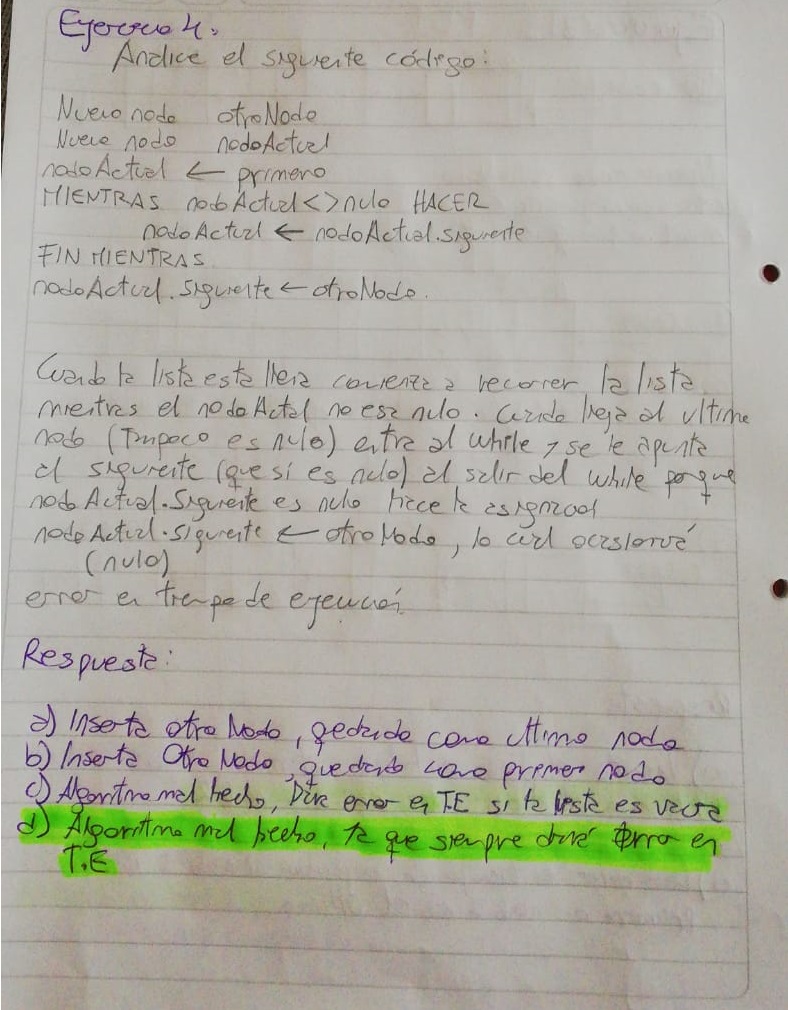 Ejercicio 4.
Analice el siguiente código:
Nuevo nodo otroNodo
Nuevo nodo nodoActual
nodoActual ← primero
MIENTRAS nodoActual <> nulo HACER
nodoActual ← nodoActual.siguiente
FIN MIENTRAS
nodoActual.siguiente ← otroNodo.
Cuando la lista esta llena comienza a recorrer la lista
mientras el nodoActal no sea nulo. Cuando llega al ultimo
nodo (Tampoco es nulo) entra al while y se le apunta
al siguiente (que sí es nulo) al salir del while porque
nodoActual.Siguiente es nulo hace la asignacot
nodoActual.siguiente ← otroNodo, lo cual ocasionará
(nulo)
error en tiempo de ejecución
Respuesta:
a) Inserta otro Nodo, quedando como ultimo nodo
b) Inserta Otro Nodo, quedando como primer nodo
c) Algoritmo mal hecho, Dara error en T.E si la lista es vacia
d) Algoritmo mal hecho, ya que siempre dará error en
T.E